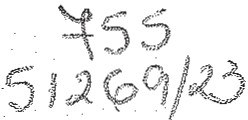 755
51269/23